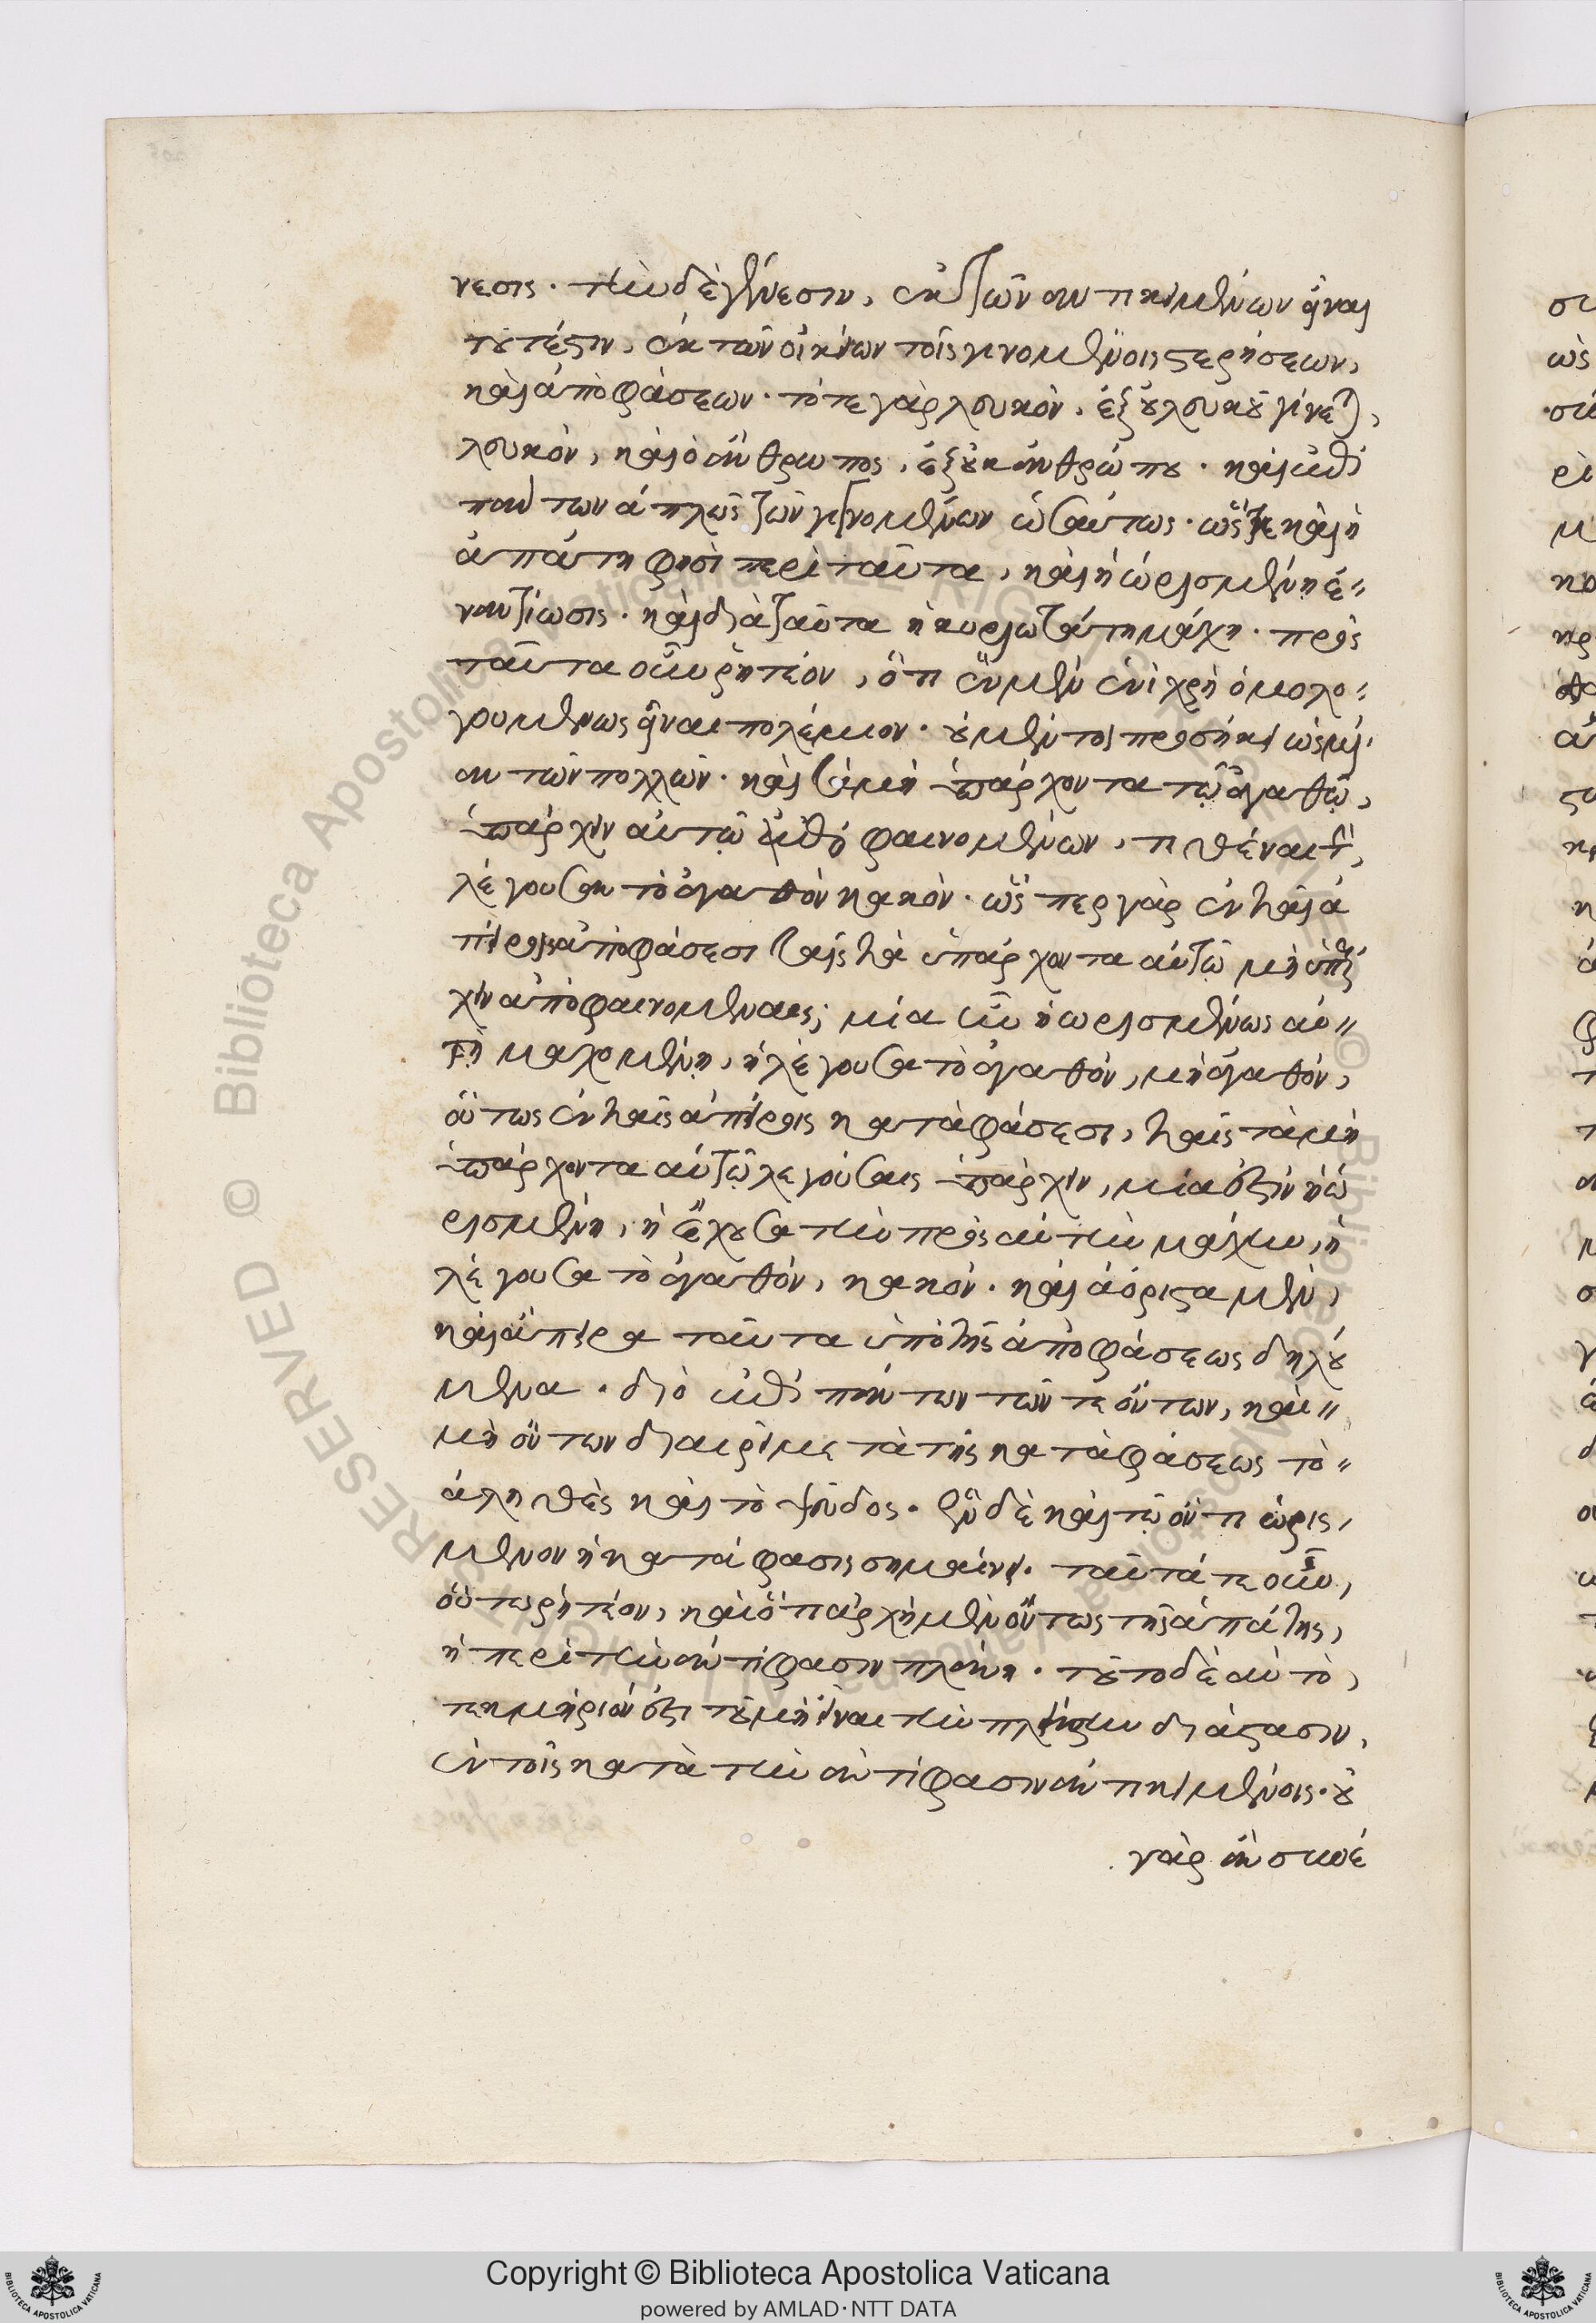 νεσις. τὴν δὲ γένεσιν, ἐκ τῶν ἀντικειμένων εἶναι
τουτέστιν, ἐκ τῶν οἰκείων τοῖς γινομένοις στερήσεων,
καὶ ἀποφάσεων. τό τε γὰρ λευκὸν, ἐξ οὐ λευκοῦ γίνεται,
λευκὸν, καὶ ὁ ἄνθρωπος, ἐξ οὐκ ἀνθρώπου. καὶ ἐπὶ
πάντων ἁπλῶς τῶν γινομένων ὡσαύτως. ὥστε καὶ ἡ
ἀπάτη φησὶ περὶ ταῦτα, καὶ ἡ ὡρισμένη ἐ-
ναντίωσις. καὶ διὰ ταῦτα ἡ κυριωτάτη μάχη. πρὸς
ταῦτα οὖν ῥητέον, ὅτι ἓν μὲν ἑνὶ χρὴ ὁμολο-
γουμένως εἶναι πολέμιον. οὐ μέντοι προσήκει ὡς μί-
αν τῶν πολλῶν. καὶ τὰ μὴ ὑπάρχοντα τῷ ἀγαθῷ,
ὑπάρχειν αὐτῷ ἀποφαινομένων, τιθέναι τὴν
λέγουσαν τὸ ἀγαθὸν κακόν. ὥσπερ γὰρ ἐν ταῖς ἀ
πείροις ἀποφάσεσι ταῖς τὰ ὑπάρχοντα αὐτῷ μὴ ὑπάρ
χειν ἀποφαινομέναις, μία ἦν ἡ ὡρισμένως αὐ-
τῇ μαχομένη, ἡ λέγουσα τὸ ἀγαθόν, μὴ ἀγαθόν,
οὕτως ἐν ταῖς ἀπείροις καταφάσεσι, ταῖς τὰ μὴ
ὑπάρχοντα αὐτῷ λεγούσαις ὑπάρχειν, μία ἐστὶν ἡ ὡ
ρισμένη, ἡ ἔχουσα τὴν πρὸς αὐτὴν μάχην, ἡ
λέγουσα τὸ ἀγαθόν, κακόν. καὶ ἀόριστα μὲν,
καὶ ἄπειρα ταῦτα ὑπὸ τῆς ἀποφάσεως δηλού
μενα. διὸ ἐπὶ πάντων τῶν τε ὄντων, καὶ
μὴ ὄντων διαιρεῖ μετὰ τῆς καταφάσεως τὸ
ἀληθὲς καὶ τὸ ψεῦδος. ἓν δὲ καὶ τῷ ὄντι ὡρισ
μένον ἡ κατάφασις σημαίνει. ταῦτά τε οὖν,
οὕτω ῥητέον, καὶ ὅτι ἀρχὴ μὲν ὄντως τῆς ἀπάτης,
ἡ περὶ τὴν ἀντίφασιν πλάνη. τοῦτο δὲ αὐτὸ,
τεκμήριόν ἐστι τοῦ μὴ εἶναι τὴν πλείστην διάστασιν,
ἐν τοῖς κατὰ τὴν ἀντίφασιν ἀντικειμένοις. οὐ
γὰρ ἂν συνέ